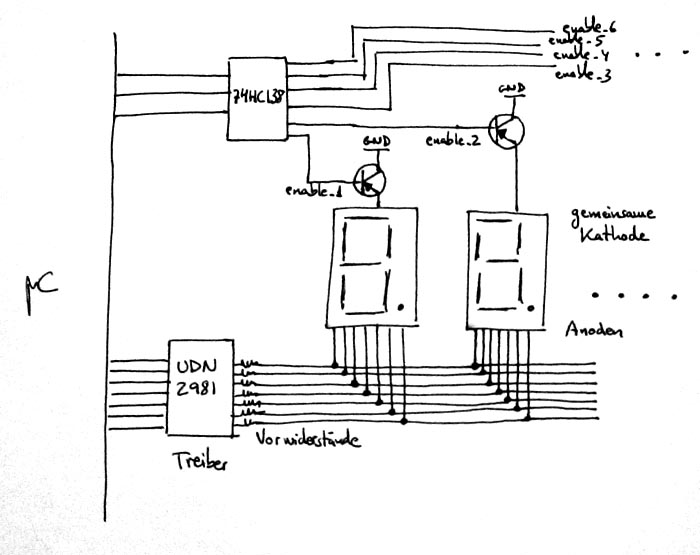 enable_6
enable_5
enable_4
enable_3
74HC138
GND
enable_2
GND
enable_1
gemeinsame
Kathode
µC
Anoden
UDN
2981
Vorwiderstände
Treiber